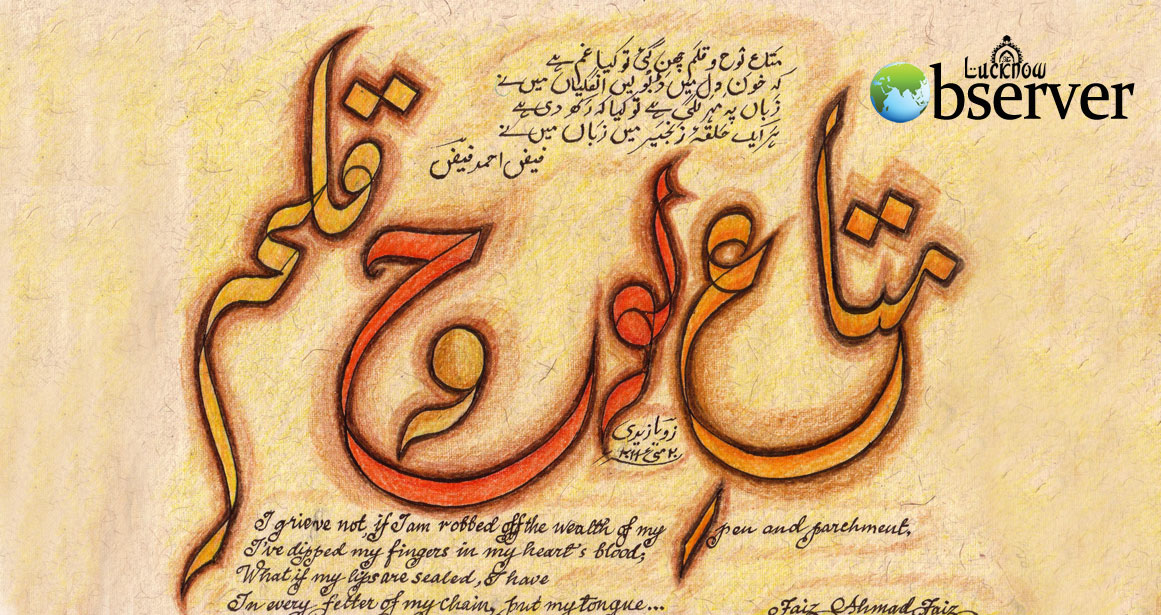 Lucknow
Observer
متاع لوح و قلم چھن گئی تو کیا غم ہے
کہ خون دل میں ڈبو لیں انگلیاں میں نے
زباں پہ مہر لگی ہے تو کیا کہ رکھ دی ہے
ہر ایک حلقۂ زنجیر میں زباں میں نے
فیض احمد فیض
متاعِ لوح و قلم
زویا زیدی
I grieve not, if I am robbed off the wealth of my pen and parchment,
I've dipped my fingers in my heart's blood;
What if my lips are sealed, I have
In every fetter of my chain, put my tongue...
Faiz Ahmad Faiz